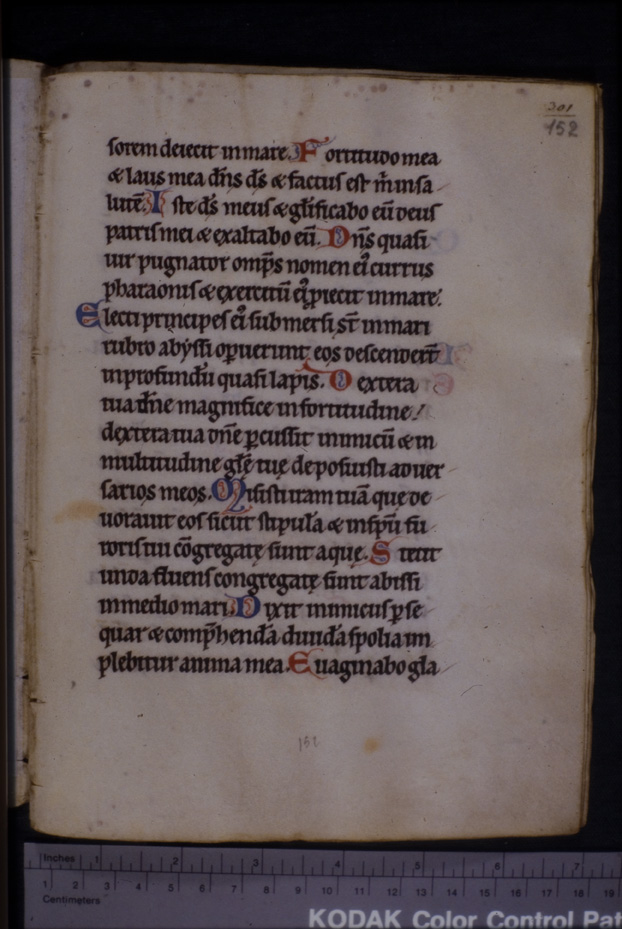 301
152
sorem deiecit in mare. Fortitudo mea
& laus mea dn̄s d̄s & factus est m̄ in sa
lutē. Iste d̄s meus & gl̄ificabo eū deus
patris mei & exaltabo eū. Dn̄s quasi
uir pugnator omp̄s nomen ei᷒ currus
pharaonis & exercitū ei᷒ ꝓiecit in mare.
Electi principes ei᷒ submersi st̄ in mari
rubro abyssi opuerunt eos descendert̄
in profundū quasi lapis. Dextera
tua dn̄e magnifice in fortitudine
dextera tua dn̄e ꝑcussit inimicū & in
multitudine gl̄ę tuę deposuisti aduer
sarios meos. Misisti iram tuā que de
uorauit eos sicut stipula & in sp̄u fu
roris tui cōgregatę sunt aquę. Stetit
unda fluens congregatę sunt abissi
in medio mari. Dixit inimicus ꝑse
quar & comp̄hendā diuidā spolia im
plebitur anima mea. Euaginabo gla
152
Inches 1 2 3 4 5 6 7
1 2 3 4 5 6 7 8 9 10 11 12 13 14 15 16 17 18 19
Centimeters
KODAK Color Control Pat